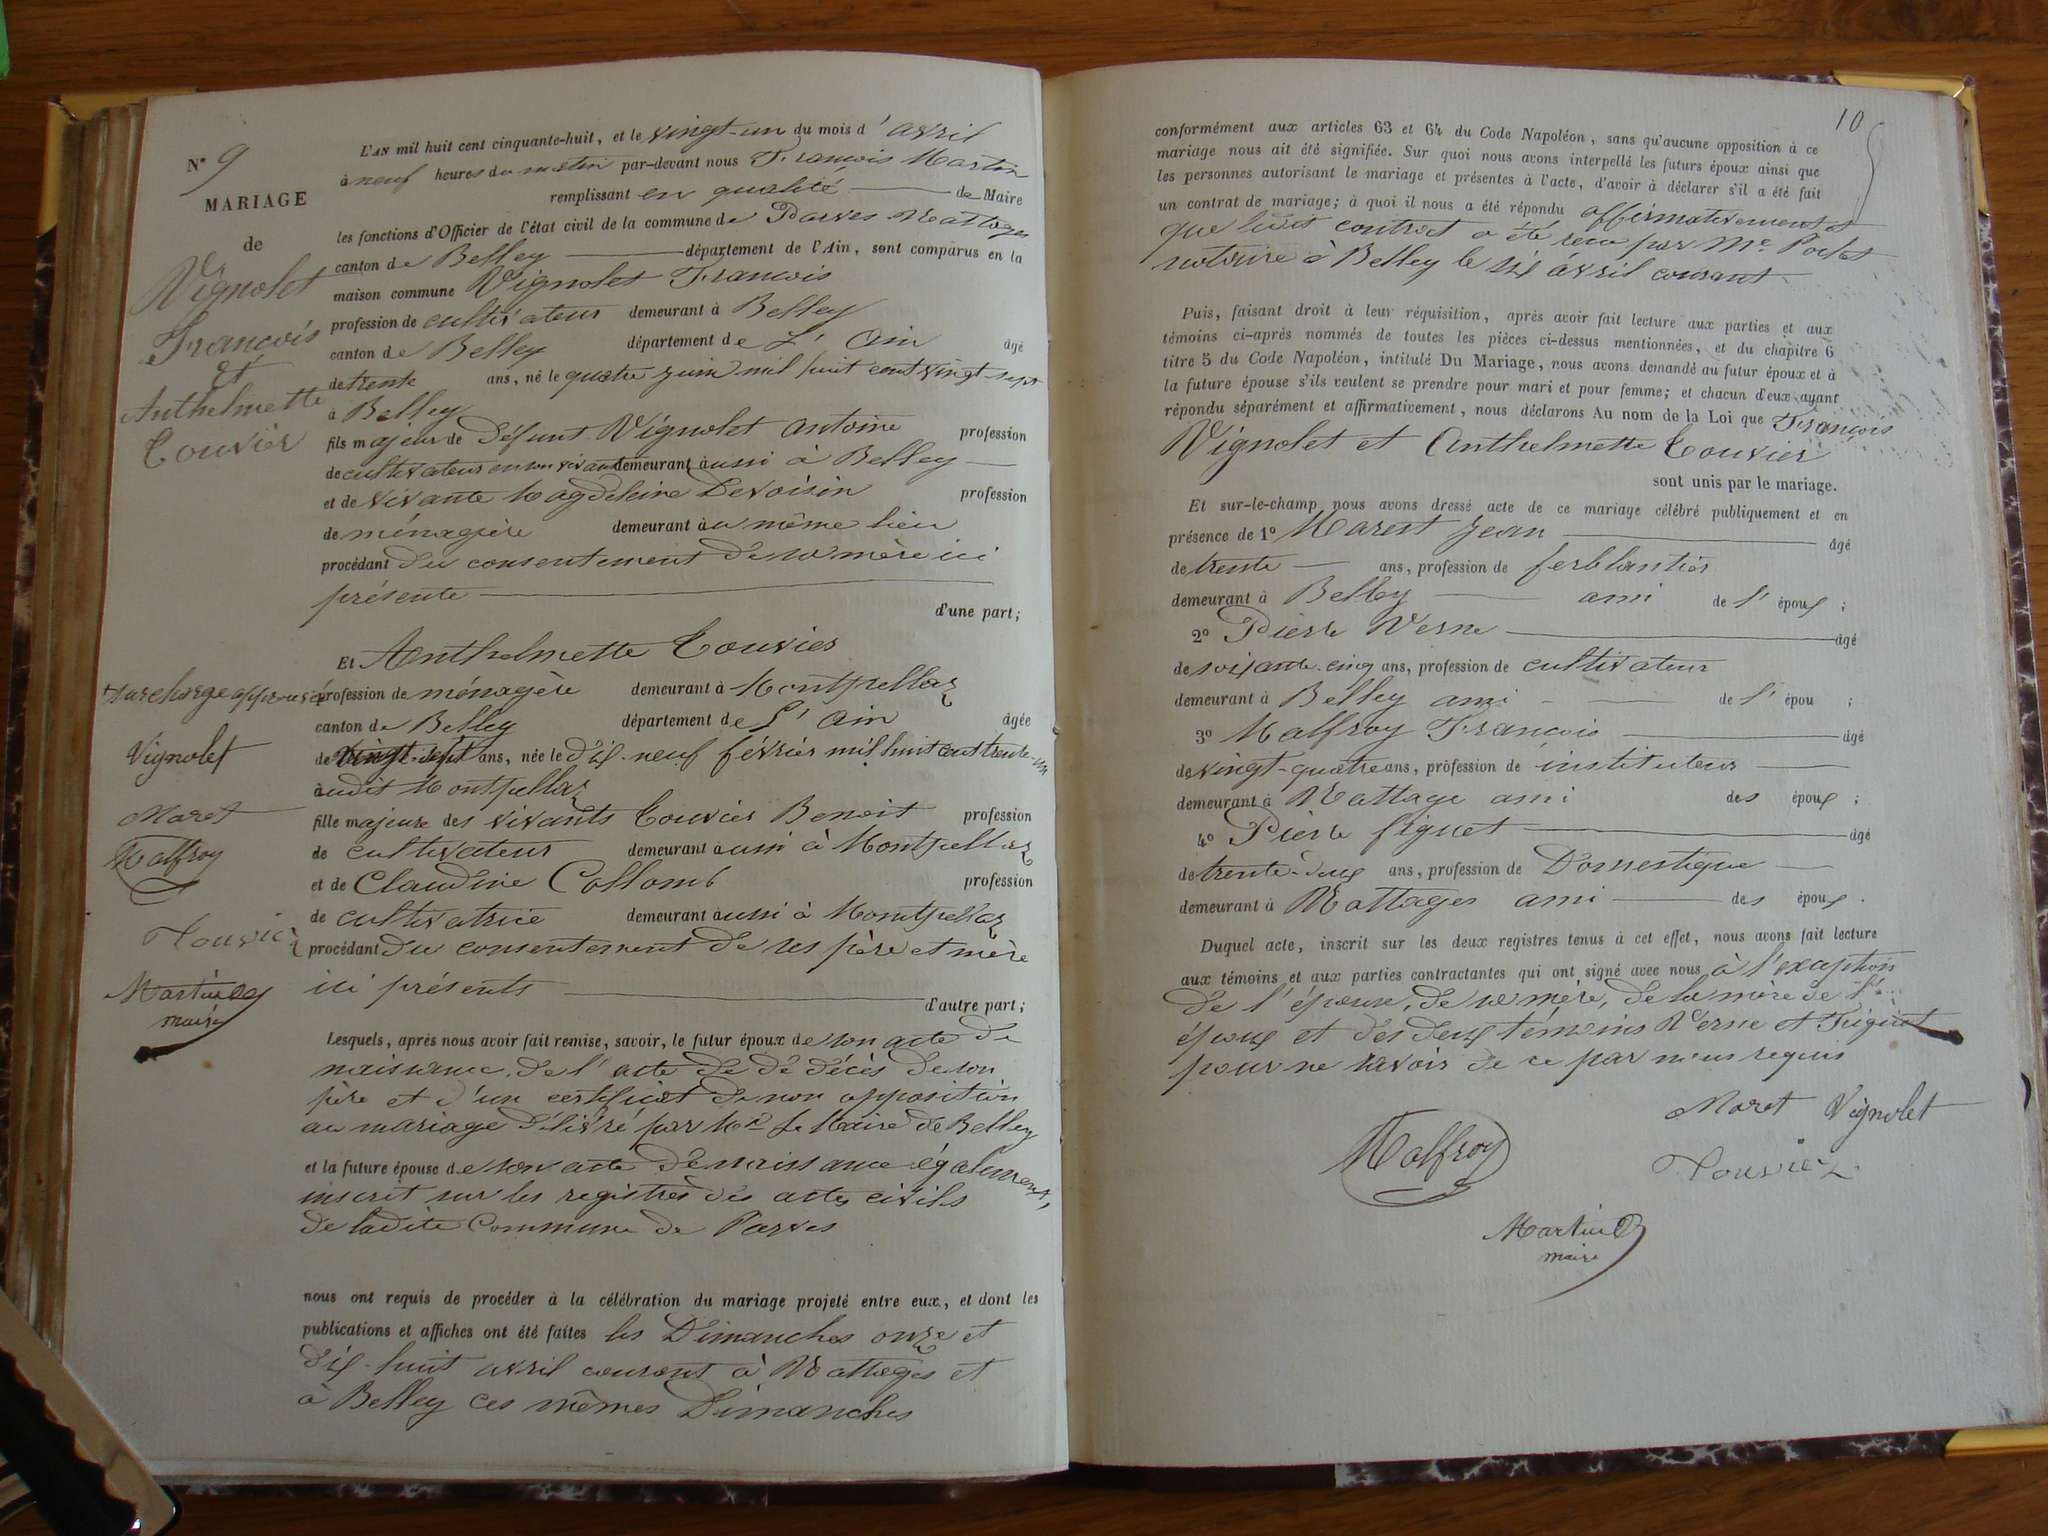 N° 9
MARIAGE
de
Vignolet
François
et
Anthelmette
Touvier
L'AN mil huit cent cinquante-huit, et le vingt-un du mois d'avril
à neuf heures du matin par-devant nous François Martin
remplissant en qualité de Maire
les fonctions d'Officier de l'état civil de la commune de Parves Nattages
canton de Belley département de l'Ain, sont comparus en la
maison commune Vignolet François
profession de cultivateur demeurant à Belley
canton de Belley département de L'Ain âgé
de trente ans, né le quatre juin mil huit cent vingt-sept
à Belley
fils majeur de défunt Vignolet Antoine profession
de cultivateur en son vivant demeurant aussi à Belley
et de vivante Magdeleine Devoisin profession
de ménagère demeurant au même lieu
procédant du consentement de sa mère ici
présente
d'une part;
Et Anthelmette Touvier
profession de ménagère demeurant à Montpellaz
canton de Belley département de L'Ain âgée
de vingt-sept ans, née le dix-neuf février mil huit cent trente-un
audit Montpellaz
fille majeure des vivants Touvier Benoit profession
de cultivateur demeurant aussi à Montpellaz
et de Claudine Collomb profession
de cultivatrice demeurant aussi à Montpellaz
procédant du consentement de ses père et mère
ici présents
d'autre part;
surcharge approuvée
Vignolet
Maret
Malfroy
Touvier
Martin
maire
Lesquels, après nous avoir fait remise, savoir, le futur époux de son acte de
naissance, de l'acte de dé décès de son
père et d'un certificat de non opposition
au mariage délivré par Mr le Maire de Belley
et la future épouse de son acte de naissance également,
inscrit sur les registres des actes civils
de ladite Commune de Parves
nous ont requis de procéder à la célébration du mariage projeté entre eux, et dont les
publications et affiches ont été faites les Dimanches onze et
dix-huit avril courant à Nattages et
à Belley ces mêmes Dimanches
10
conformément aux articles 63 et 64 du Code Napoléon, sans qu'aucune opposition à ce
mariage nous ait été signifiée. Sur quoi nous avons interpellé les futurs époux ainsi que
les personnes autorisant le mariage et présentes à l'acte, d'avoir à déclarer s'il a été fait
un contrat de mariage; à quoi il nous a été répondu affirmativement et
que ledit contrat a été reçu par Me Pochet
notaire à Belley le six avril courant
Puis, faisant droit à leur réquisition, après avoir fait lecture aux parties et aux
témoins ci-après nommés de toutes les pièces ci-dessus mentionnées, et du chapitre 6
titre 5 du Code Napoléon, intitulé Du Mariage, nous avons demandé au futur époux et à
la future épouse s'ils veulent se prendre pour mari et pour femme; et chacun d'eux ayant
répondu séparément et affirmativement, nous déclarons Au nom de la Loi que François
Vignolet et Anthelmette Touvier
sont unis par le mariage.
Et sur-le-champ nous avons dressé acte de ce mariage célébré publiquement et en
présence de 1° Marest Jean âgé
de trente ans, profession de ferblantier
demeurant à Belley ami de l'époux;
2° Pierre Verne âgé
de soixante-cinq ans, profession de cultivateur
demeurant à Belley ami de l'épou ;
3° Malfroy François âgé
de vingt-quatre ans, profession de instituteur
demeurant à Nattage ami des époux;
4° Pierre figuet âgé
de trente-deux ans, profession de Domestique
demeurant à Nattages ami des époux.
Duquel acte, inscrit sur les deux registres tenus à cet effet, nous avons fait lecture
aux témoins et aux parties contractantes qui ont signé avec nous à l'exception
de l'épouse, de sa mère, de la mère de l'
époux et des deux témoins Verne et Figuet
pour ne savoir de ce par nous requis
Maret Vignolet
Malfroy
Touvier
Martin
maire